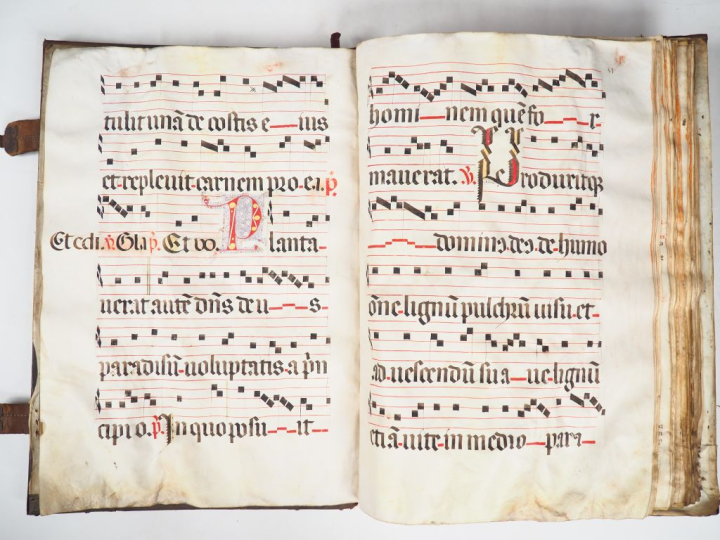 tulit unā de costis e — ius
et repleuit carnem pro e.i. ꝟ
Et edi. ꝟ. Gl̄a p̄. Et vo. Planta-
uerat autē dn̄s deu — s.
paradisū uoluptatis a p̄n
cipio. p̄. In quo posu — it —
homi — nem quē fo — r
mauerat. ꝟ. Produxitqꝫ
— dominꝰ deꝰ de humo
ōne lignū pulchrū uisu et-
ad uescendū sua — ue lignū
etiā uite in medio — para —